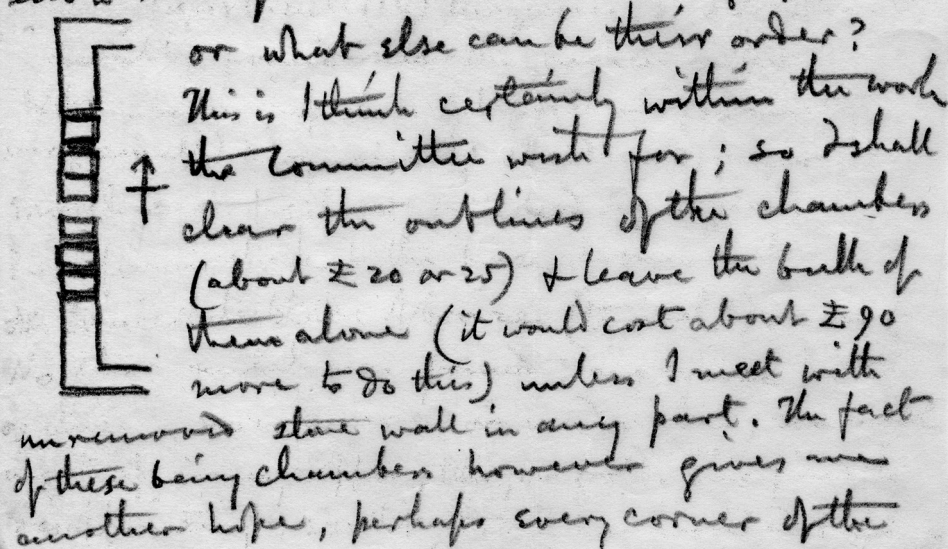 or what else can be their order?
This is I think certainly within the work
the Committee wish for; so I shall
clear the outlines of the chambers
(about £20 or 25) & leave the bulk of
them alone (it would cost about £90
more to do this) unless I meet with
unremoved stone wall in any part. The fact
of these being chambers however gives me
another hope, perhaps every corner of the